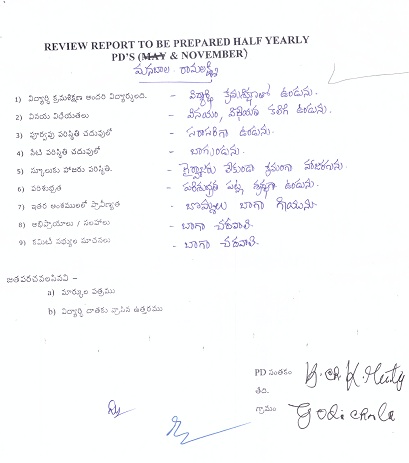 REVIEW REPORT TO BE PREPARED HALF YEARLY
PD'S (MAY & NOVEMBER)
మనబాల రామలక్ష్మి
1) విద్యార్థి క్రమశిక్షణ అందరి విద్యార్థులది. - విద్యార్థి క్రమశిక్షణతో ఉండును.
2) వినయ విధేయతలు - వినయం, విధేయత కలిగి ఉండును.
3) పూర్వపు పరిస్థితి చదువులో - సరాసరిగా ఉండును.
4) నేటి పరిస్థితి చదువులో - బాగుండును.
5) స్కూలుకు హాజరు పరిస్థితి. - లేకుండా క్రమంగా
6) పరిశుభ్రత - పరిశుభ్రత పట్ల శ్రద్ధగా ఉండును.
7) ఇతర అంశములలో ప్రావీణ్యత - బొమ్మలు బాగా గీయును.
8) అభిప్రాయాలు / సలహాలు - బాగా చదవాలి
9) కమిటీ సభ్యుల సూచనలు - బాగా చదవాలి
జతపరచవలసినవి –
a) మార్కుల పత్రము
b) విద్యార్థి దాతకు వ్రాసిన ఉత్తరము
PD సంతకం
తేది.
గ్రామం Godicherla